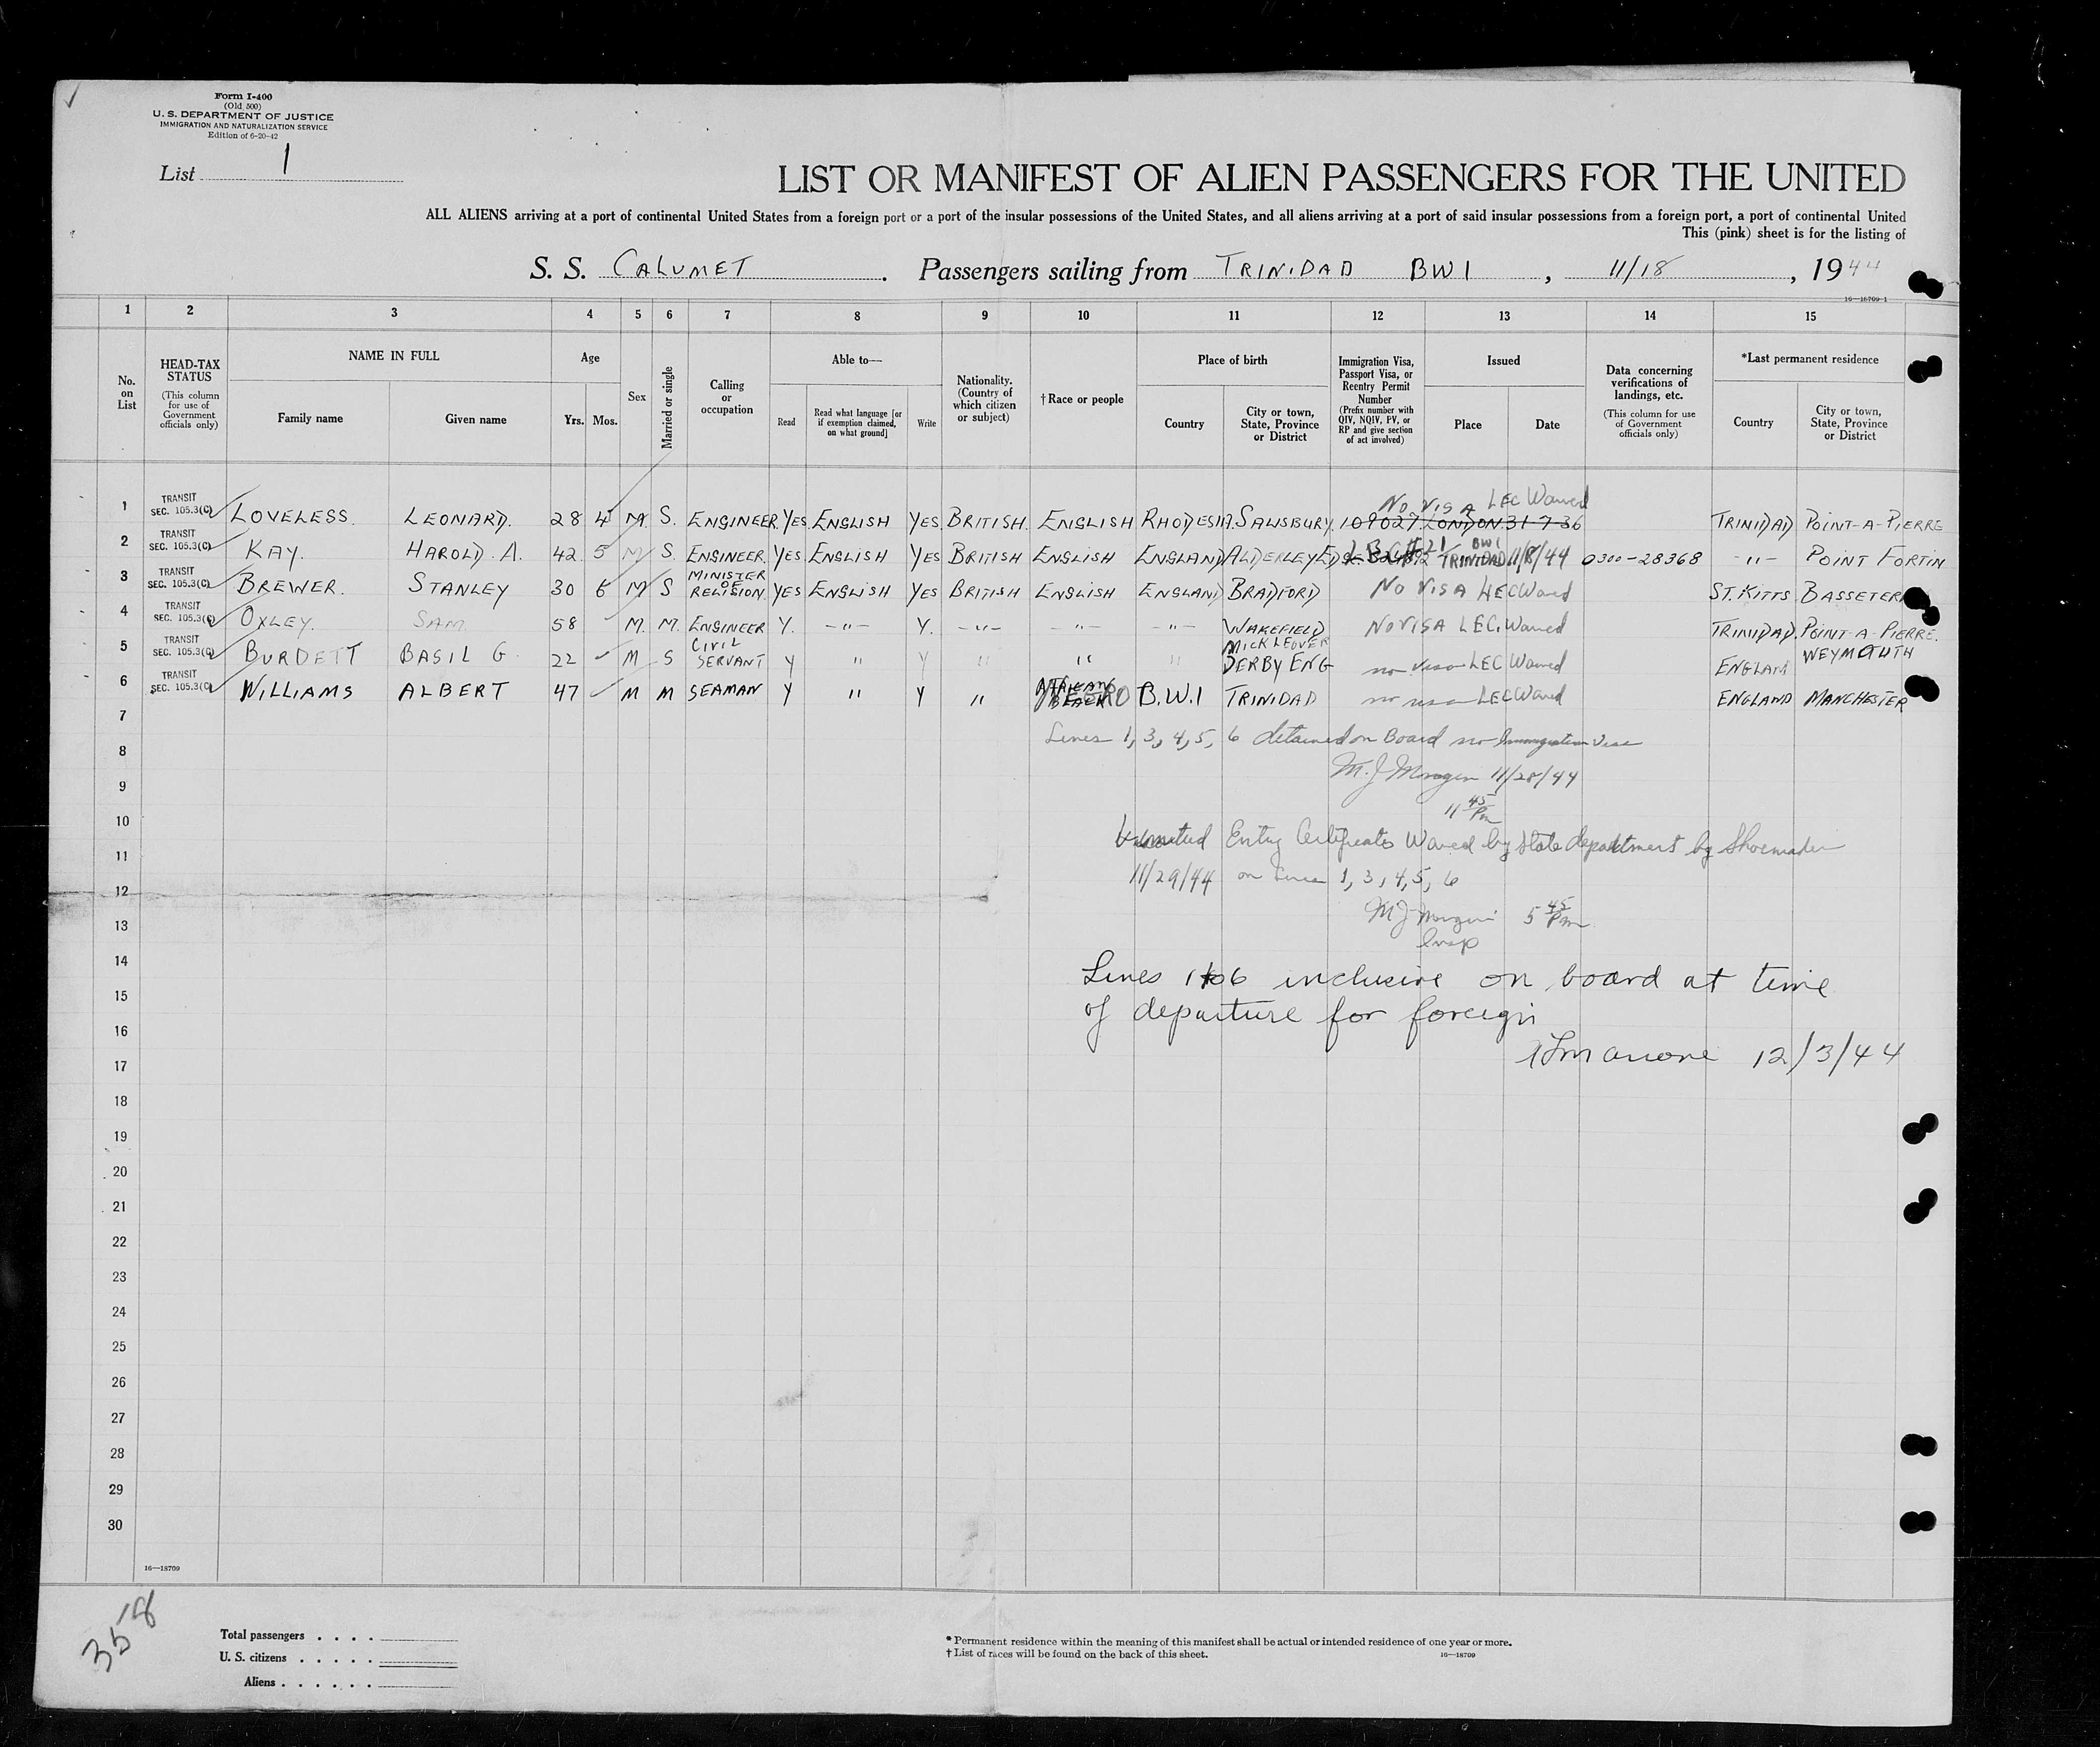 Form I-400
(Old 500)
U. S. DEPARTMENT OF JUSTICE
IMMIGRATION AND NATURALIZATION SERVICE
Edition of 6-20-42
List 1
LIST OR MANIFEST OF ALIEN PASSENGERS FOR THE UNITED
ALL ALIENS arriving at a port of continental United States from a foreign port or a port of the insular possessions of the United States, and all aliens arriving at a port of said insular possessions from a foreign port, a port of continental United
This (pink) sheet is for the listing of
S. S. CALUMET. Passengers sailing from TRINIDAD BWI, 11/18, 1944
16—18709-1
1 2 3 4 5 6 7 8 9 10 11 12 13 14 15
No. on List
HEAD-TAX STATUS
(This column for use of Government officials only)
NAME IN FULL
Family name
Given name
Age
Yrs. Mos.
Sex
Married or single
Calling or occupation
Able to—
Read
Read what language [or if exemption claimed, on what ground]
Write
Nationality. (Country of which citizen or subject)
†Race or people
Place of birth
Country
City or town, State, Province or District
Immigration Visa, Passport Visa, or Reentry Permit Number
(Prefix number with QIV, NQIV, PV, or RP and give section of act involved)
Issued
Place
Date
Data concerning verifications of landings, etc.
(This column for use of Government officials only)
*Last permanent residence
Country
City or town, State, Province or District
NO VISA LEC Waived
1 TRANSIT SEC. 105.3(C) LOVELESS. LEONARD. 28 4 M. S. ENGINEER. YES. ENGLISH YES. BRITISH. ENGLISH RHODESIA. SALISBURY. 109027. LONDON 31-7-36 TRINIDAD POINT-A-PIERRE
2 TRANSIT SEC. 105.3(C) KAY. HAROLD. A. 42 5 M S. ENGINEER. YES ENGLISH YES BRITISH ENGLISH ENGLAND ALDERLEY ED TRINIDAD BWI 11/8/44 0300-28368 -"- POINT FORTIN
3 TRANSIT SEC. 105.3(C) BREWER. STANLEY 30 6 M S MINISTER OF RELIGION. YES ENGLISH YES BRITISH ENGLISH ENGLAND BRADFORD NO VISA LEC Waived ST. KITTS BASSETER
4 TRANSIT SEC. 105.3(C) OXLEY. SAM 58 M. M. ENGINEER Y. -"- Y. -"- -"- -"- WAKEFIELD NO VISA LEC. Waived TRINIDAD. POINT-A-PIERRE.
5 TRANSIT SEC. 105.3(C) BURDETT BASIL G. 22 M S CIVIL SERVANT Y " Y " " " MICKLEOVER DERBY ENG no visa LEC Waived ENGLAN WEYMOUTH
6 TRANSIT SEC. 105.3(C) WILLIAMS ALBERT 47 M M SEAMAN Y " Y " B.W.I TRINIDAD no visa LEC Waived ENGLAND MANCHESTER
7
Lines 1, 3, 4, 5, 6 detained on Board no Immigration Visa
8
M. J. Morgan 11/28/44
9
11 45 Pm
10
Entry Certificates Waived by State department by Shoemaker
11
11/29/44 on Lines 1, 3, 4, 5, 6
12
M J Morgan 5 45 Pm
13
Insp
14
Lines 1 to 6 inclusive on board at time
15
of departure for foreign
16
12/3/44
17
18
19
20
21
22
23
24
25
26
27
28
29
30
16—18709
358
Total passengers . . . .
U. S. citizens . . . . .
Aliens . . . . . .
* Permanent residence within the meaning of this manifest shall be actual or intended residence of one year or more.
† List of races will be found on the back of this sheet.
16—18709